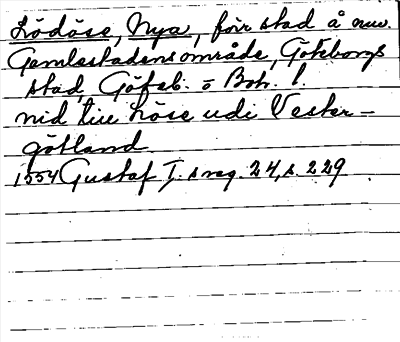 Lödöse, Nya, förr stad å nuv.
Gamlestadens område, Göteborgs
stad, Göteb. o Boh. l.
nid till Löse udi Vester-
götland.
1554 Gustaf I:s reg. 24, s. 229